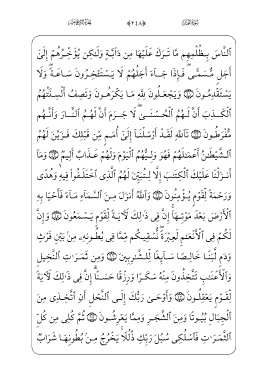 ٱلنَّاسَ بِظُلْمِهِم مَّا تَرَكَ عَلَيْهَا مِن دَآبَّةٍ وَلَٰكِن يُؤَخِّرُهُمْ إِلَىٰٓ
أَجَلٍ مُّسَمًّى فَإِذَا جَآءَ أَجَلُهُمْ لَا يَسْتَـْٔخِرُونَ سَاعَةً وَلَا
يَسْتَقْدِمُونَ ۝ وَيَجْعَلُونَ لِلَّهِ مَا يَكْرَهُونَ وَتَصِفُ أَلْسِنَتُهُمُ
ٱلْكَذِبَ أَنَّ لَهُمُ ٱلْحُسْنَىٰ لَا جَرَمَ أَنَّ لَهُمُ ٱلنَّارَ وَأَنَّهُم
مُّفْرَطُونَ ۝ تَٱللَّهِ لَقَدْ أَرْسَلْنَآ إِلَىٰٓ أُمَمٍ مِّن قَبْلِكَ فَزَيَّنَ لَهُمُ
ٱلشَّيْطَٰنُ أَعْمَٰلَهُمْ فَهُوَ وَلِيُّهُمُ ٱلْيَوْمَ وَلَهُمْ عَذَابٌ أَلِيمٌ ۝ وَمَآ
أَنزَلْنَا عَلَيْكَ ٱلْكِتَٰبَ إِلَّا لِتُبَيِّنَ لَهُمُ ٱلَّذِى ٱخْتَلَفُوا۟ فِيهِ وَهُدًى
وَرَحْمَةً لِّقَوْمٍ يُؤْمِنُونَ ۝ وَٱللَّهُ أَنزَلَ مِنَ ٱلسَّمَآءِ مَآءً فَأَحْيَا بِهِ
ٱلْأَرْضَ بَعْدَ مَوْتِهَآ إِنَّ فِى ذَٰلِكَ لَـَٔايَةً لِّقَوْمٍ يَسْمَعُونَ ۝ وَإِنَّ
لَكُمْ فِى ٱلْأَنْعَٰمِ لَعِبْرَةً نُّسْقِيكُم مِّمَّا فِى بُطُونِهِۦ مِنۢ بَيْنِ فَرْثٍ
وَدَمٍ لَّبَنًا خَالِصًا سَآئِغًا لِّلشَّٰرِبِينَ ۝ وَمِن ثَمَرَٰتِ ٱلنَّخِيلِ
وَٱلْأَعْنَٰبِ تَتَّخِذُونَ مِنْهُ سَكَرًا وَرِزْقًا حَسَنًا إِنَّ فِى ذَٰلِكَ لَـَٔايَةً
لِّقَوْمٍ يَعْقِلُونَ ۝ وَأَوْحَىٰ رَبُّكَ إِلَى ٱلنَّحْلِ أَنِ ٱتَّخِذِى مِنَ
ٱلْجِبَالِ بُيُوتًا وَمِنَ ٱلشَّجَرِ وَمِمَّا يَعْرِشُونَ ۝ ثُمَّ كُلِى مِن كُلِّ
ٱلثَّمَرَٰتِ فَٱسْلُكِى سُبُلَ رَبِّكِ ذُلُلًا يَخْرُجُ مِنۢ بُطُونِهَا شَرَابٌ